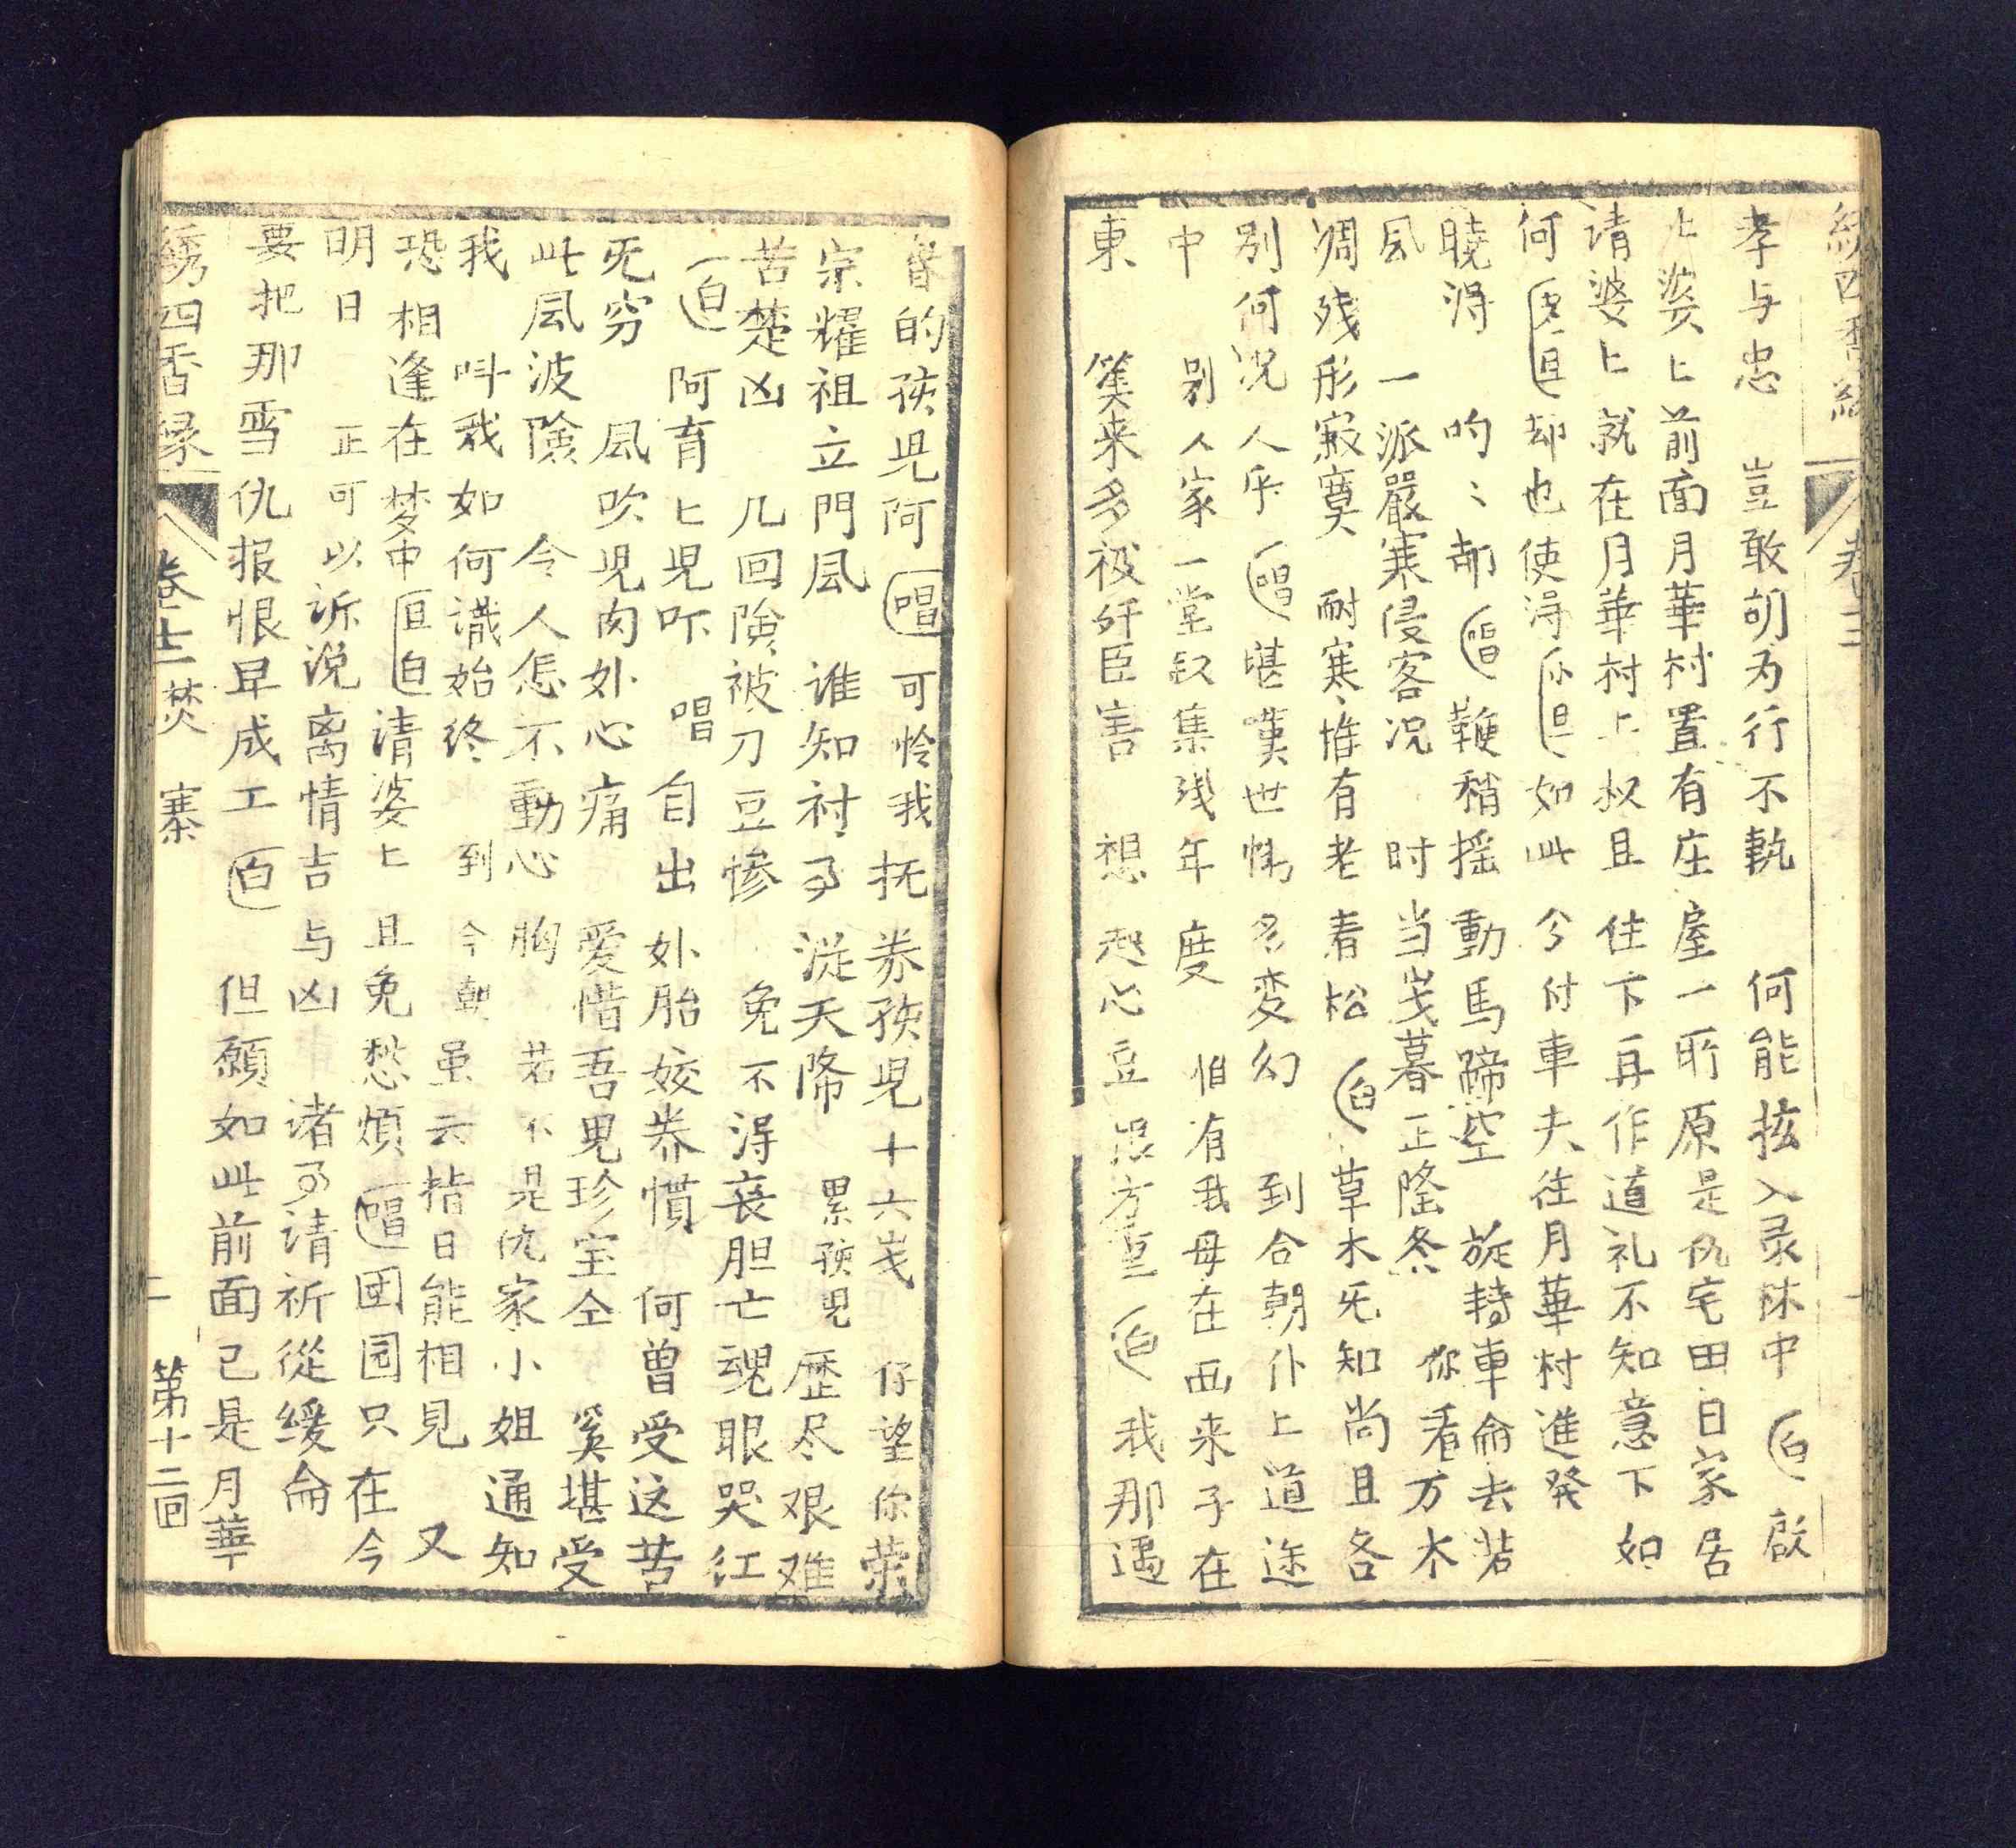 孝与忠 豈敢胡为行不軌 何能挍入录林中 白 啟
上婆上前面月華村置有庄屋一所原是仇宅田日家居
请婆上就在月華村上权且住下再作道礼不知意下如
何 老旦 却也使淂 小旦 如此 分付車夫往月華村進発
曉淂 哟〻都 唱 鞭稍摇動馬蹄空 旋轉車侖去若
風 一派嚴寒侵客况 时当岁暮正隆冬 你看万木
凋残形寂寞 耐寒惟有老着松 白 草木旡知尚且各
别何况人乎 唱 堪嘆世情多变幻 到合朝仆上道途
中 别人家一堂叙集残年度 惟有我母在西来子在
東 算来多被奸臣害 想起心豆 白 我那遇
的孩児阿 唱 可怜我抚养孩児十六岁 仔望你荣
宗耀祖立門風 谁知祔 従天降 累孩児歷尽艰难
苦楚凶 几回險被刀豆惨 免不淂丧胆亡魂眼哭红
白 阿育匕児吓 唱 自出外胎姣养慣 何曽受这苦
旡穷 風吹児肉外心痛 愛惜吾児珍宝仝 奚堪受
此風波險 令人怎不動心胸 若不是仇家小姐通知
我 呌我如何識始终 到今朝虽云指日能相見 又
恐相逢在梦中 旦白 请婆上且免愁煩 唱 团园只在今
明日 正可以诉说离情吉与凶 诸 请祈從缓侖
要把那雪仇报恨早成工 白 但願如此前面已是月華
绣四香缘 卷十二 焚寨 二 第十二回